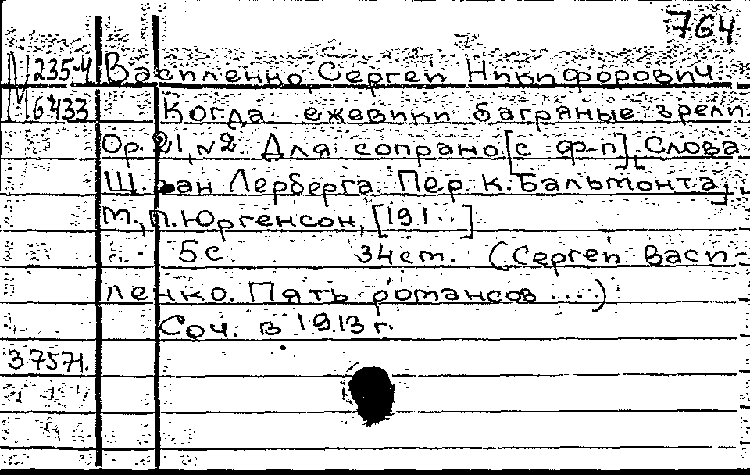 764
235-4 Василенко, Сергей Никифорович.
6433 Когда ежевики багряные зрели
Op. 21, №2. Для сопрано [с ф-п]. Слова
Ш. ван Лерберга. Пер. К. Бальмонта,
М., П. Юргенсон, [191..]
5с. 34 см. (Сергей Васи-
ленко. Пять романсов ....)
Соч. в 1913 г.
37571.